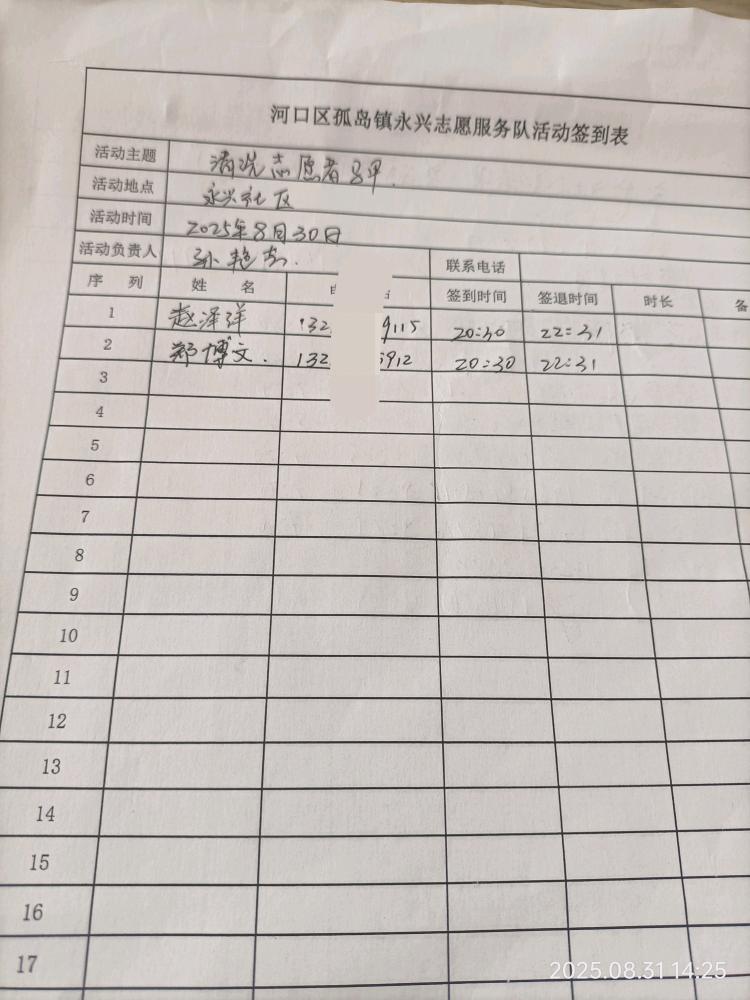 河口区孤岛镇永兴志愿服务队活动签到表
活动主题 清洗志愿者马甲.
活动地点 永兴社区
活动时间 2025年8月30日
活动负责人 孙艳 联系电话
序 列 姓 名 签到时间 签退时间 时长 备
1 赵泽洋 132 9115 20:30 22:31
2 郑博文. 132 5912 20:30 22:31
3
4
5
6
7
8
9
10
11
12
13
14
15
16
17
2025.08.31 14:25